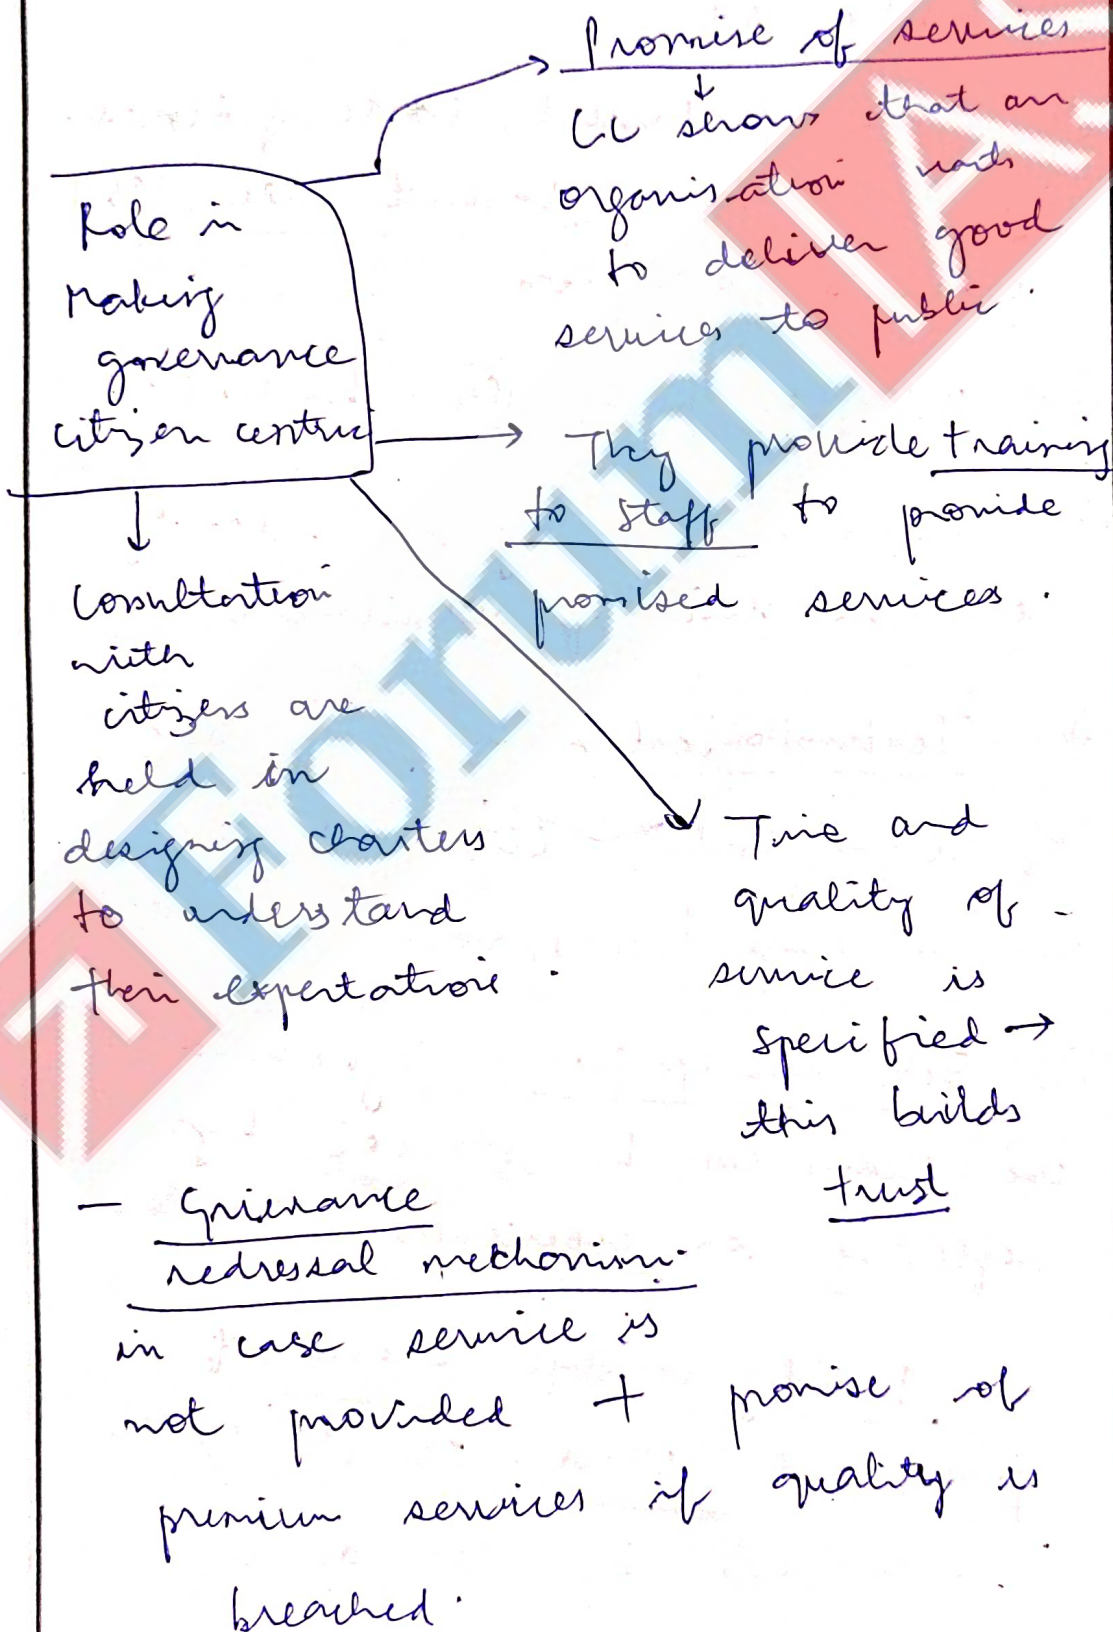 Promise of services
↓
CC shows that an
organisation wants
to deliver good
services to public.
Role in
Making
governance
citizen centric
They provide training
to staff to provide
promised services.
Consultation
with
citizens are
held in
designing charters
to understand
their expectations.
Time and
quality of
service is
specified →
this builds
trust
- Grievance
redressal mechanism
in case service is
not provided + promise of
premium services if quality is
breached.
7 Forum IAS